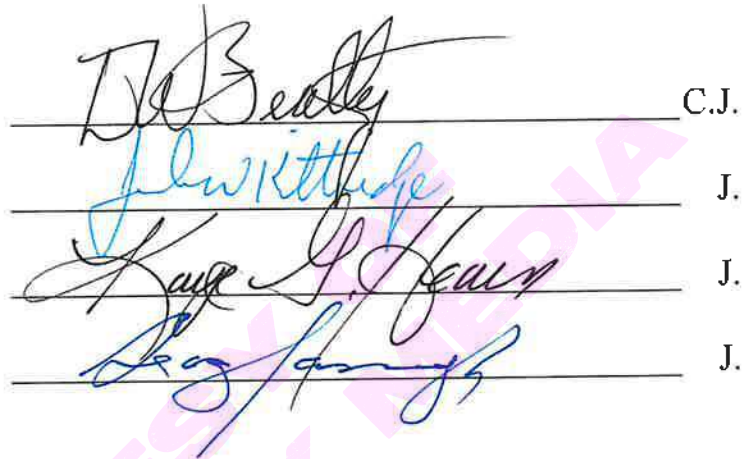 DW Beatty C.J.
John W Kittredge J.
Kaye G. Hearn J.
J.
MEDIA